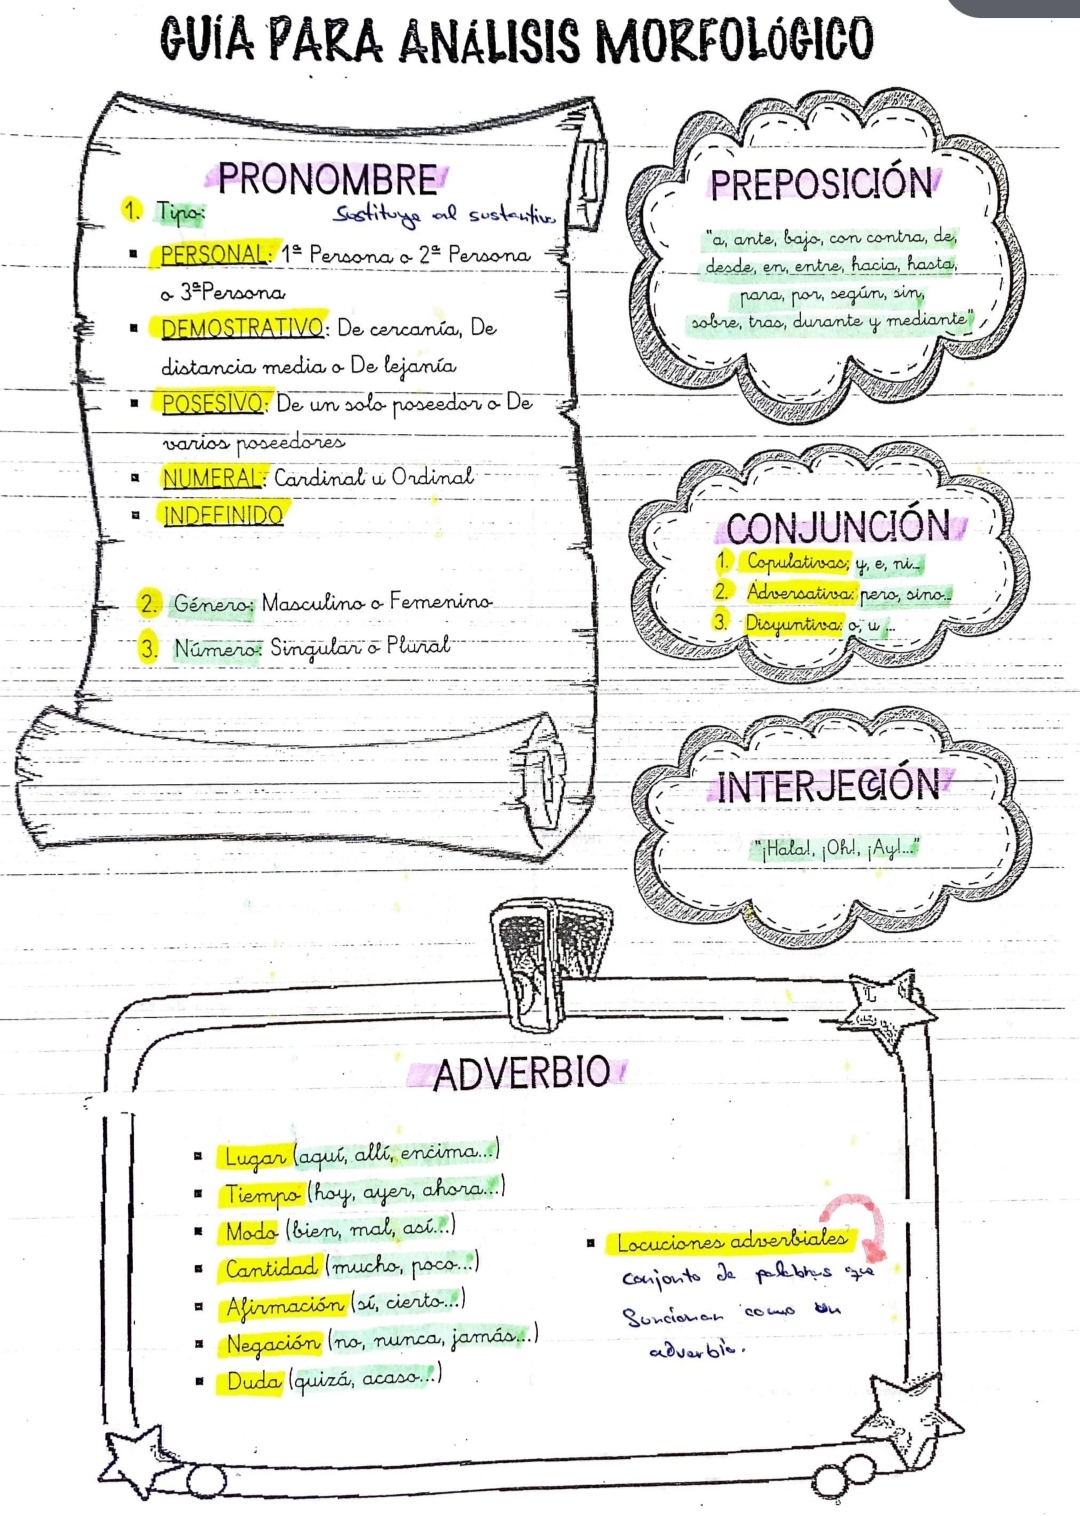 GUÍA PARA ANÁLISIS MORFOLÓGICO
PRONOMBRE
Sustituye al sustantivo
1. Tipo:
▪ PERSONAL: 1ª Persona o 2ª Persona
o 3ª Persona
▪ DEMOSTRATIVO: De cercanía, De
distancia media o De lejanía
▪ POSESIVO: De un solo poseedor o De
varios poseedores
▪ NUMERAL: Cardinal u Ordinal
▪ INDEFINIDO
2. Género: Masculino o Femenino
3. Número: Singular o Plural
PREPOSICIÓN
"a, ante, bajo, con contra, de,
desde, en, entre, hacia, hasta,
para, por, según, sin,
sobre, tras, durante y mediante"
CONJUNCIÓN
1. Copulativas; y, e, ni...
2. Adversativa: pero, sino...
3. Disyuntiva: o, u ...
INTERJECIÓN
"¡Hala!, ¡Oh!, ¡Ay!..."
ADVERBIO
▪ Lugar (aquí, allí, encima...)
▪ Tiempo (hoy, ayer, ahora...)
▪ Modo (bien, mal, así...)
▪ Cantidad (mucho, poco...)
▪ Afirmación (sí, cierto...)
▪ Negación (no, nunca, jamás...)
▪ Duda (quizá, acaso...)
▪ Locuciones adverbiales
conjunto de palabras que
funcionan como un
adverbio.